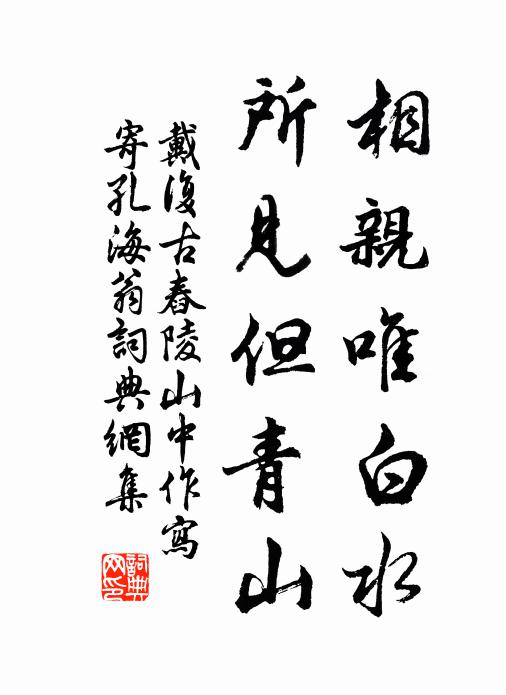 相親唯白水
所見但青山
戴復古春陵山中作寫
寄孔海翁詞典網集
詞典
网印